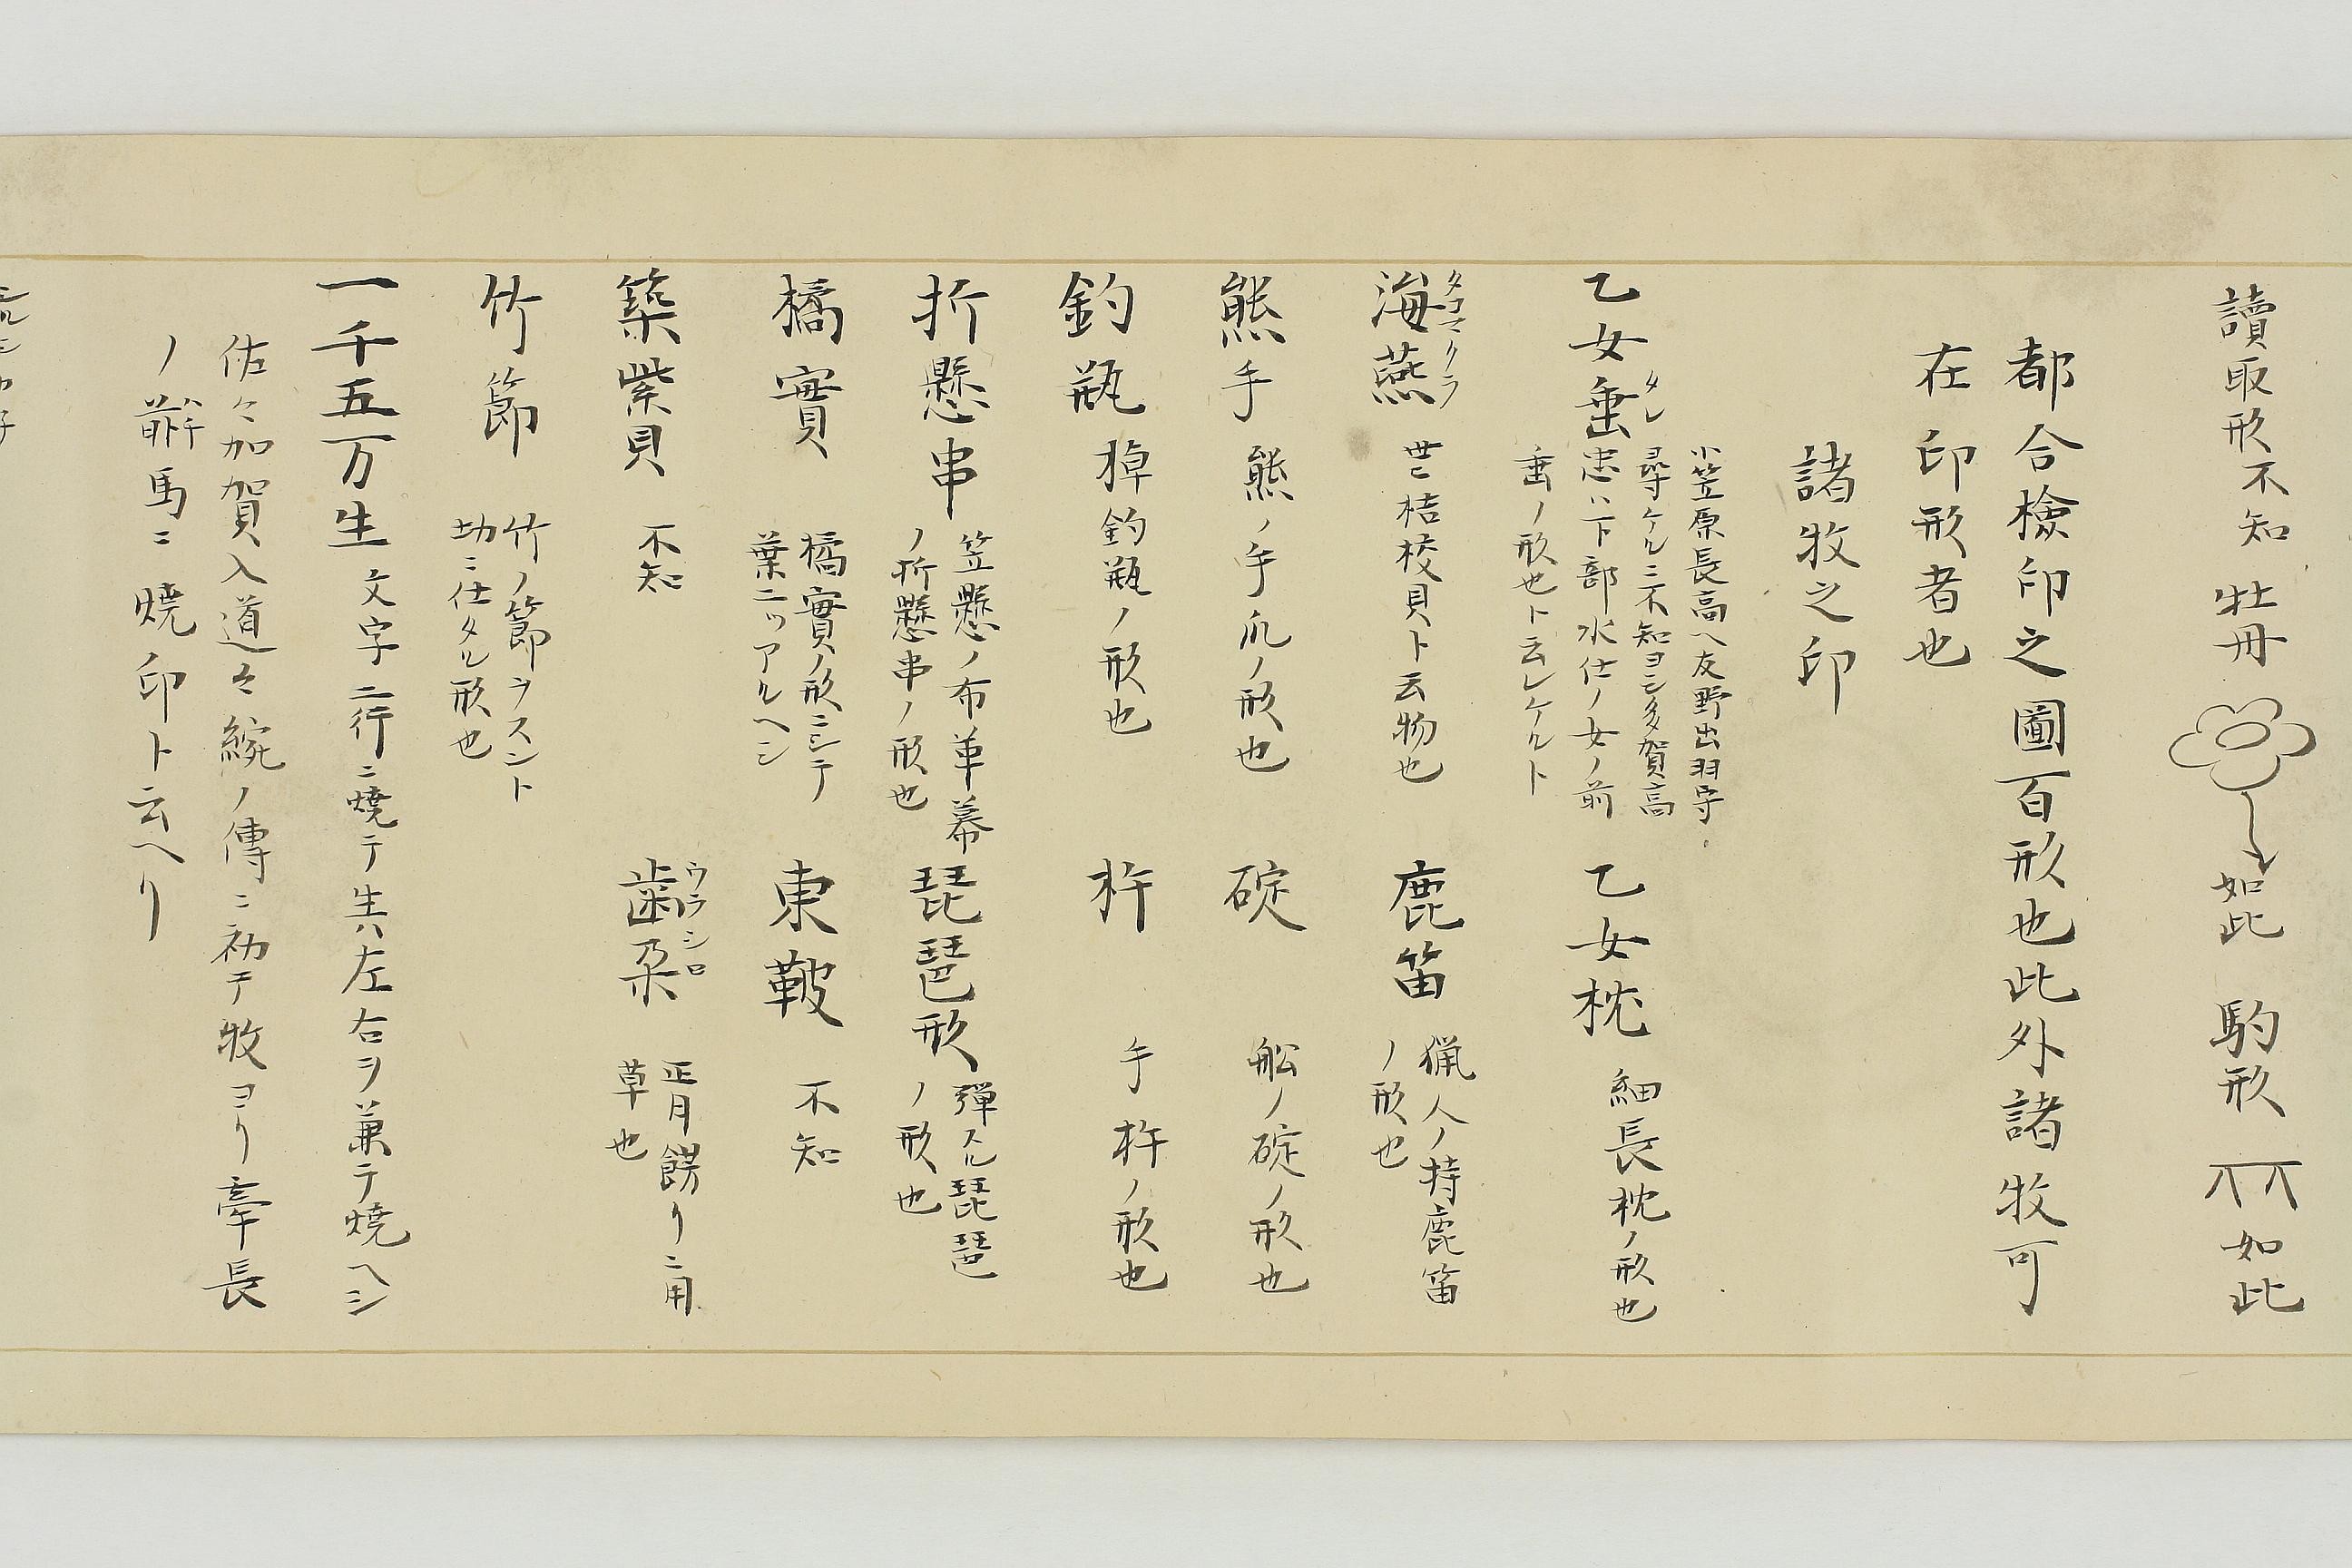 讀取形不知 牡丹 如此 駒形 如此
都合檢印之圖百形也此外諸牧可
在印形者也
諸牧之印
乙女垂タレ
小笠原長高へ友野出羽守
尋ケルニ不知ヨシ多賀高
忠ハ下部水仕ノ女ノ前
垂ノ形也ト云レケルト
乙女枕 細長枕ノ形也
海燕タコマクラ 世ニ桔梗貝ト云物也
鹿笛
猟人ノ持鹿笛
ノ形也
熊手 熊ノ手爪ノ形也
碇 舩ノ碇ノ形也
釣瓶 棹釣瓶ノ形也
杵 手杵ノ形也
折懸串
笠懸ノ布革幕
ノ折懸串ノ形也
琵琶形
弾スル琵琶
ノ形也
橘實
橘實ノ形ニシテ
葉二ツアルヘシ
東鞁 不知
築紫貝 不知
歯朶ウラシロ
正月餝リニ用
草也
竹節
竹ノ節ヲスント
切ニ仕タル形也
一千五万生 文字二行ニ燒テ生ハ左右ヲ兼テ燒ヘシ
佐々加賀入道々綩ノ傳ニ初テ牧ヨリ牽長
ノ馬ニ燒印ト云ヘリ